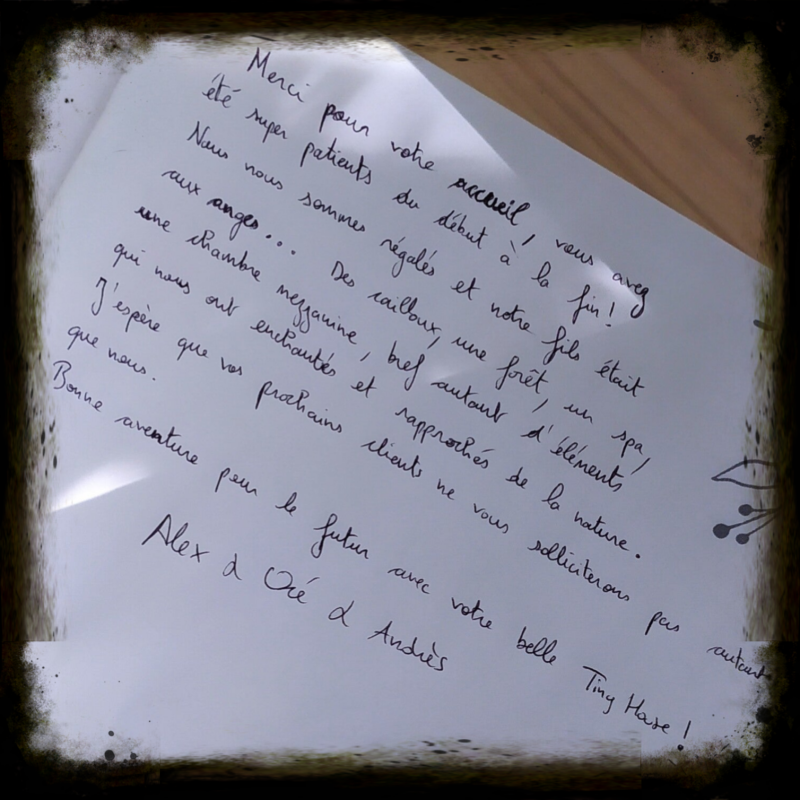 Merci pour votre accueil, vous avez
été super patients du début à la fin !
Nous nous sommes régalés et notre fils était
aux anges... Des cailloux, une forêt, un spa,
une chambre mezzanine, bref autant d'éléments
qui nous ont enchantés et rapprochés de la nature.
J'espère que vos prochains clients ne vous solliciterons pas autant
que nous.
Bonne aventure pour le futur avec votre belle Tiny House !
Alex & Océ & Andrès